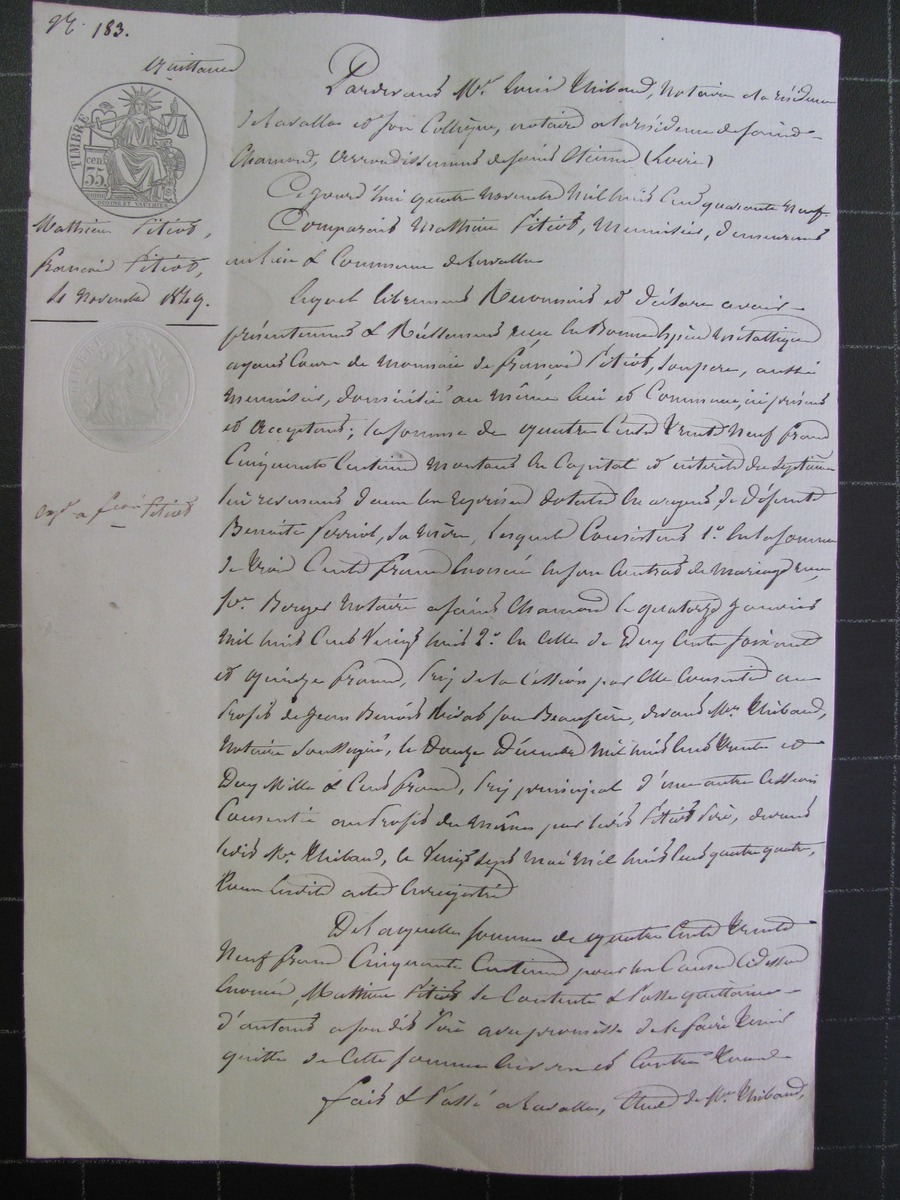 N° 183.
Quittance
TIMBRE
35 cen
Mathieu Pitiot,
françois Pitiot,
4 Novembre 1849.
Pardevant Me Louis Thibaud, Notaire à la résidence
de Lavalla et son Collègue, notaire à la résidence de saint
Chamond, arrondissement de saint Etienne (Loire)
Ce jourd'hui quatre novembre mil huit cent quarante neuf
Comparait Mathieu Pitiot, Menuisier, demeurant
au lieu & Commune de Lavalla
Lequel librement Reconnait et déclare avoir
présentement & Réellement reçu en Bonne espèce métallique
ayant Cours de monnaie de françois Pitiot, son père, aussi
menuisier, domicilié au même lieu et Commune, ici présent
et acceptant; la somme de quatre Cent trente Neuf franc
Cinquante Centime montant en Capital et intérêt du septième
lui revenant dans les reprises dotales
Benoite sa mère, lesquels Consistent 1° en la somme
de trois Cents francs en son Contrat de mariage reçu
Me Notaire à saint Chamond le quatorze janvier
mil huit cent vingt huit 2° en celle de deux cents soixante
et quinze francs, prix de la cession par elle Consentie au
Profit de Jean Benoit son Beaufrère, devant Me Thibaud,
Notaire Soussigné, le douze décembre mil huit cent trente et
deux mille & cent francs, prix principal d'une autre Cession
Consentie au Profit du même par ledit Pitiot Père, devant
ledit Me Thibaud, le vingt sept mai mil huit cent quarante quatre,
enregistré
De laquelle somme de quatre Cent trente
Neuf franc Cinquante Centime pour les Causes cidessus
énoncé Mathieu Pitiot se Contente & Passe quittance
d'autant à son dit Père avec promesse de le faire tenir
quitte de Cette somme envers et Contre tous
fait & Passé à Lavalla, Etude de Me Thibaud,